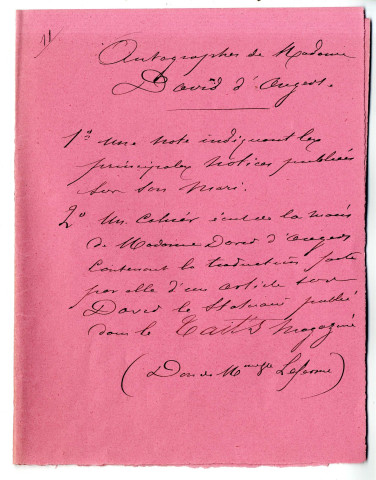 11
Autographes de Madame
David d'Angers.
1° une note indiquant les
principales notices publiées
sur son mari.
2° un cahier écrit de la main
de Madame David d'Angers
contenant la traduction faite
par elle d'un article sur
David le statuaire publié
dans le Tait's Magazine
(Don de Mme